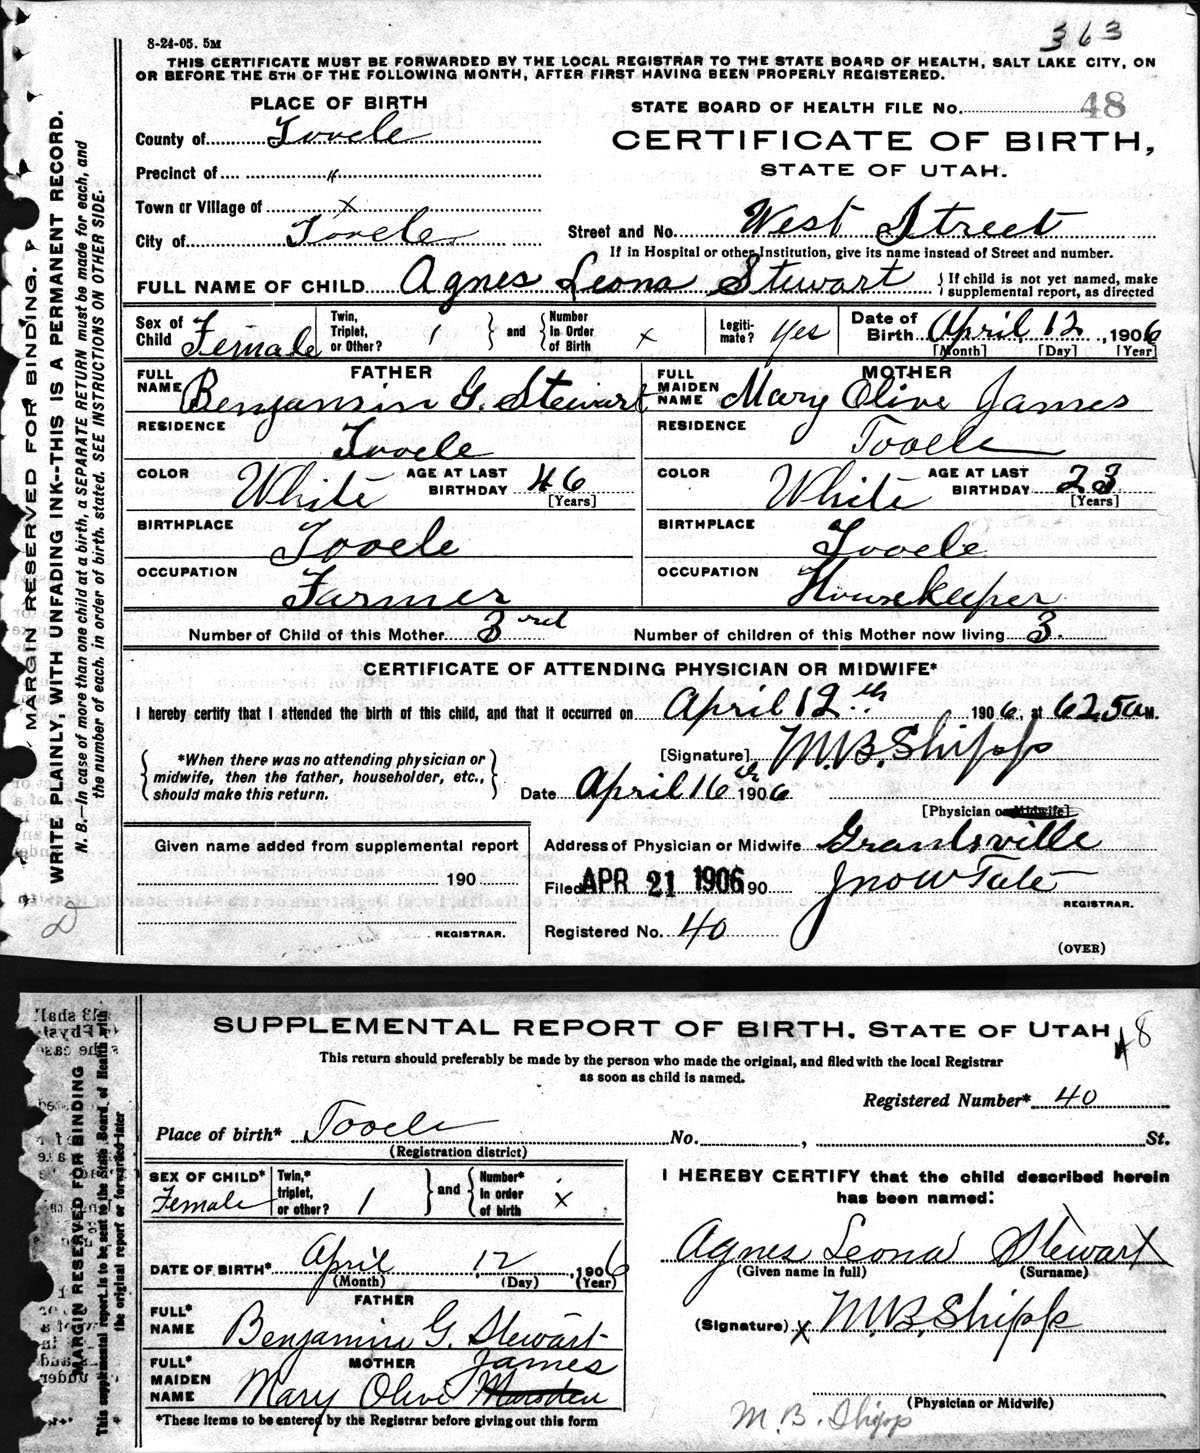 363
8-24-05. 5M
THIS CERTIFICATE MUST BE FORWARDED BY THE LOCAL REGISTRAR TO THE STATE BOARD OF HEALTH, SALT LAKE CITY, ON
OR BEFORE THE 5TH OF THE FOLLOWING MONTH, AFTER FIRST HAVING BEEN PROPERLY REGISTERED.
PLACE OF BIRTH
STATE BOARD OF HEALTH FILE No. 48
County of Tooele
CERTIFICATE OF BIRTH,
Precinct of "
STATE OF UTAH.
Town or Village of x
City of Tooele
Street and No. West Street
If in Hospital or other Institution, give its name instead of Street and number.
FULL NAME OF CHILD Agnes Leona Stewart { If child is not yet named, make
supplemental report, as directed
Sex of
Child Female
Twin,
Triplet,
or Other? 1
} and {
Number
In Order
of Birth x
Legiti-
mate? Yes
Date of
Birth April, 12, 1906
[Month] [Day] [Year]
FATHER
FULL
NAME Benjamin G. Stewart
MOTHER
FULL
MAIDEN
NAME Mary Olive James
RESIDENCE
Tooele
RESIDENCE
Tooele
COLOR White AGE AT LAST
BIRTHDAY 46
[Years]
COLOR White AGE AT LAST
BIRTHDAY 23
[Years]
BIRTHPLACE
Tooele
BIRTHPLACE
Tooele
OCCUPATION
Farmer
OCCUPATION
Housekeeper
Number of Child of this Mother 3rd
Number of children of this Mother now living 3.
CERTIFICATE OF ATTENDING PHYSICIAN OR MIDWIFE*
I hereby certify that I attended the birth of this child, and that it occurred on April 12th 1906, at 6250 A M.
{ *When there was no attending physician or
midwife, then the father, householder, etc.,
should make this return. }
[Signature] M.B. Shipp
Date April 16th 1906
[Physician or Midwife]
Given name added from supplemental report
190
REGISTRAR.
Address of Physician or Midwife Grantsville
Filed APR 21 1906 190 Jno W Tate
REGISTRAR.
Registered No. 40
(OVER)
MARGIN RESERVED FOR BINDING.
WRITE PLAINLY, WITH UNFADING INK--THIS IS A PERMANENT RECORD.
N. B.—In case of more than one child at a birth, a SEPARATE RETURN must be made for each, and
the number of each, in order of birth, stated. SEE INSTRUCTIONS ON OTHER SIDE.
SUPPLEMENTAL REPORT OF BIRTH, STATE OF UTAH
48
This return should preferably be made by the person who made the original, and filed with the local Registrar
as soon as child is named.
Registered Number* 40
Place of birth* Tooele No. , St.
(Registration district)
SEX OF CHILD*
Female
Twin,*
triplet,
or other? 1
} and {
Number*
In order
of birth x
I HEREBY CERTIFY that the child described herein
has been named:
Agnes Leona Stewart
(Given name in full) (Surname)
DATE OF BIRTH* April 12, 1906
(Month) (Day) (Year)
FATHER
FULL*
NAME Benjamin G. Stewart
(Signature) x M.B. Shipp
MOTHER
FULL*
MAIDEN
NAME Mary Olive James
(Physician or Midwife)
M. B. Shipp
*These items to be entered by the Registrar before giving out this form
MARGIN RESERVED FOR BINDING
This supplemental report is to be sent to the State Board of Health with
the original report or forwarded later